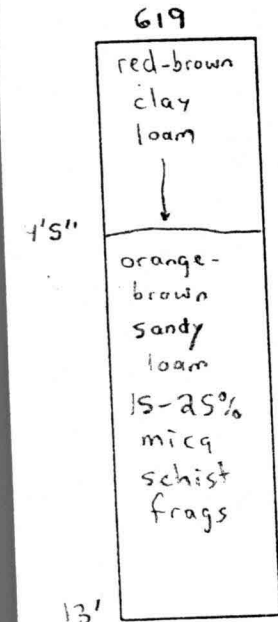 619
red-brown
clay
loam
4'5"
orange-
brown
sandy
loam
15-25%
mica
schist
frags
13'